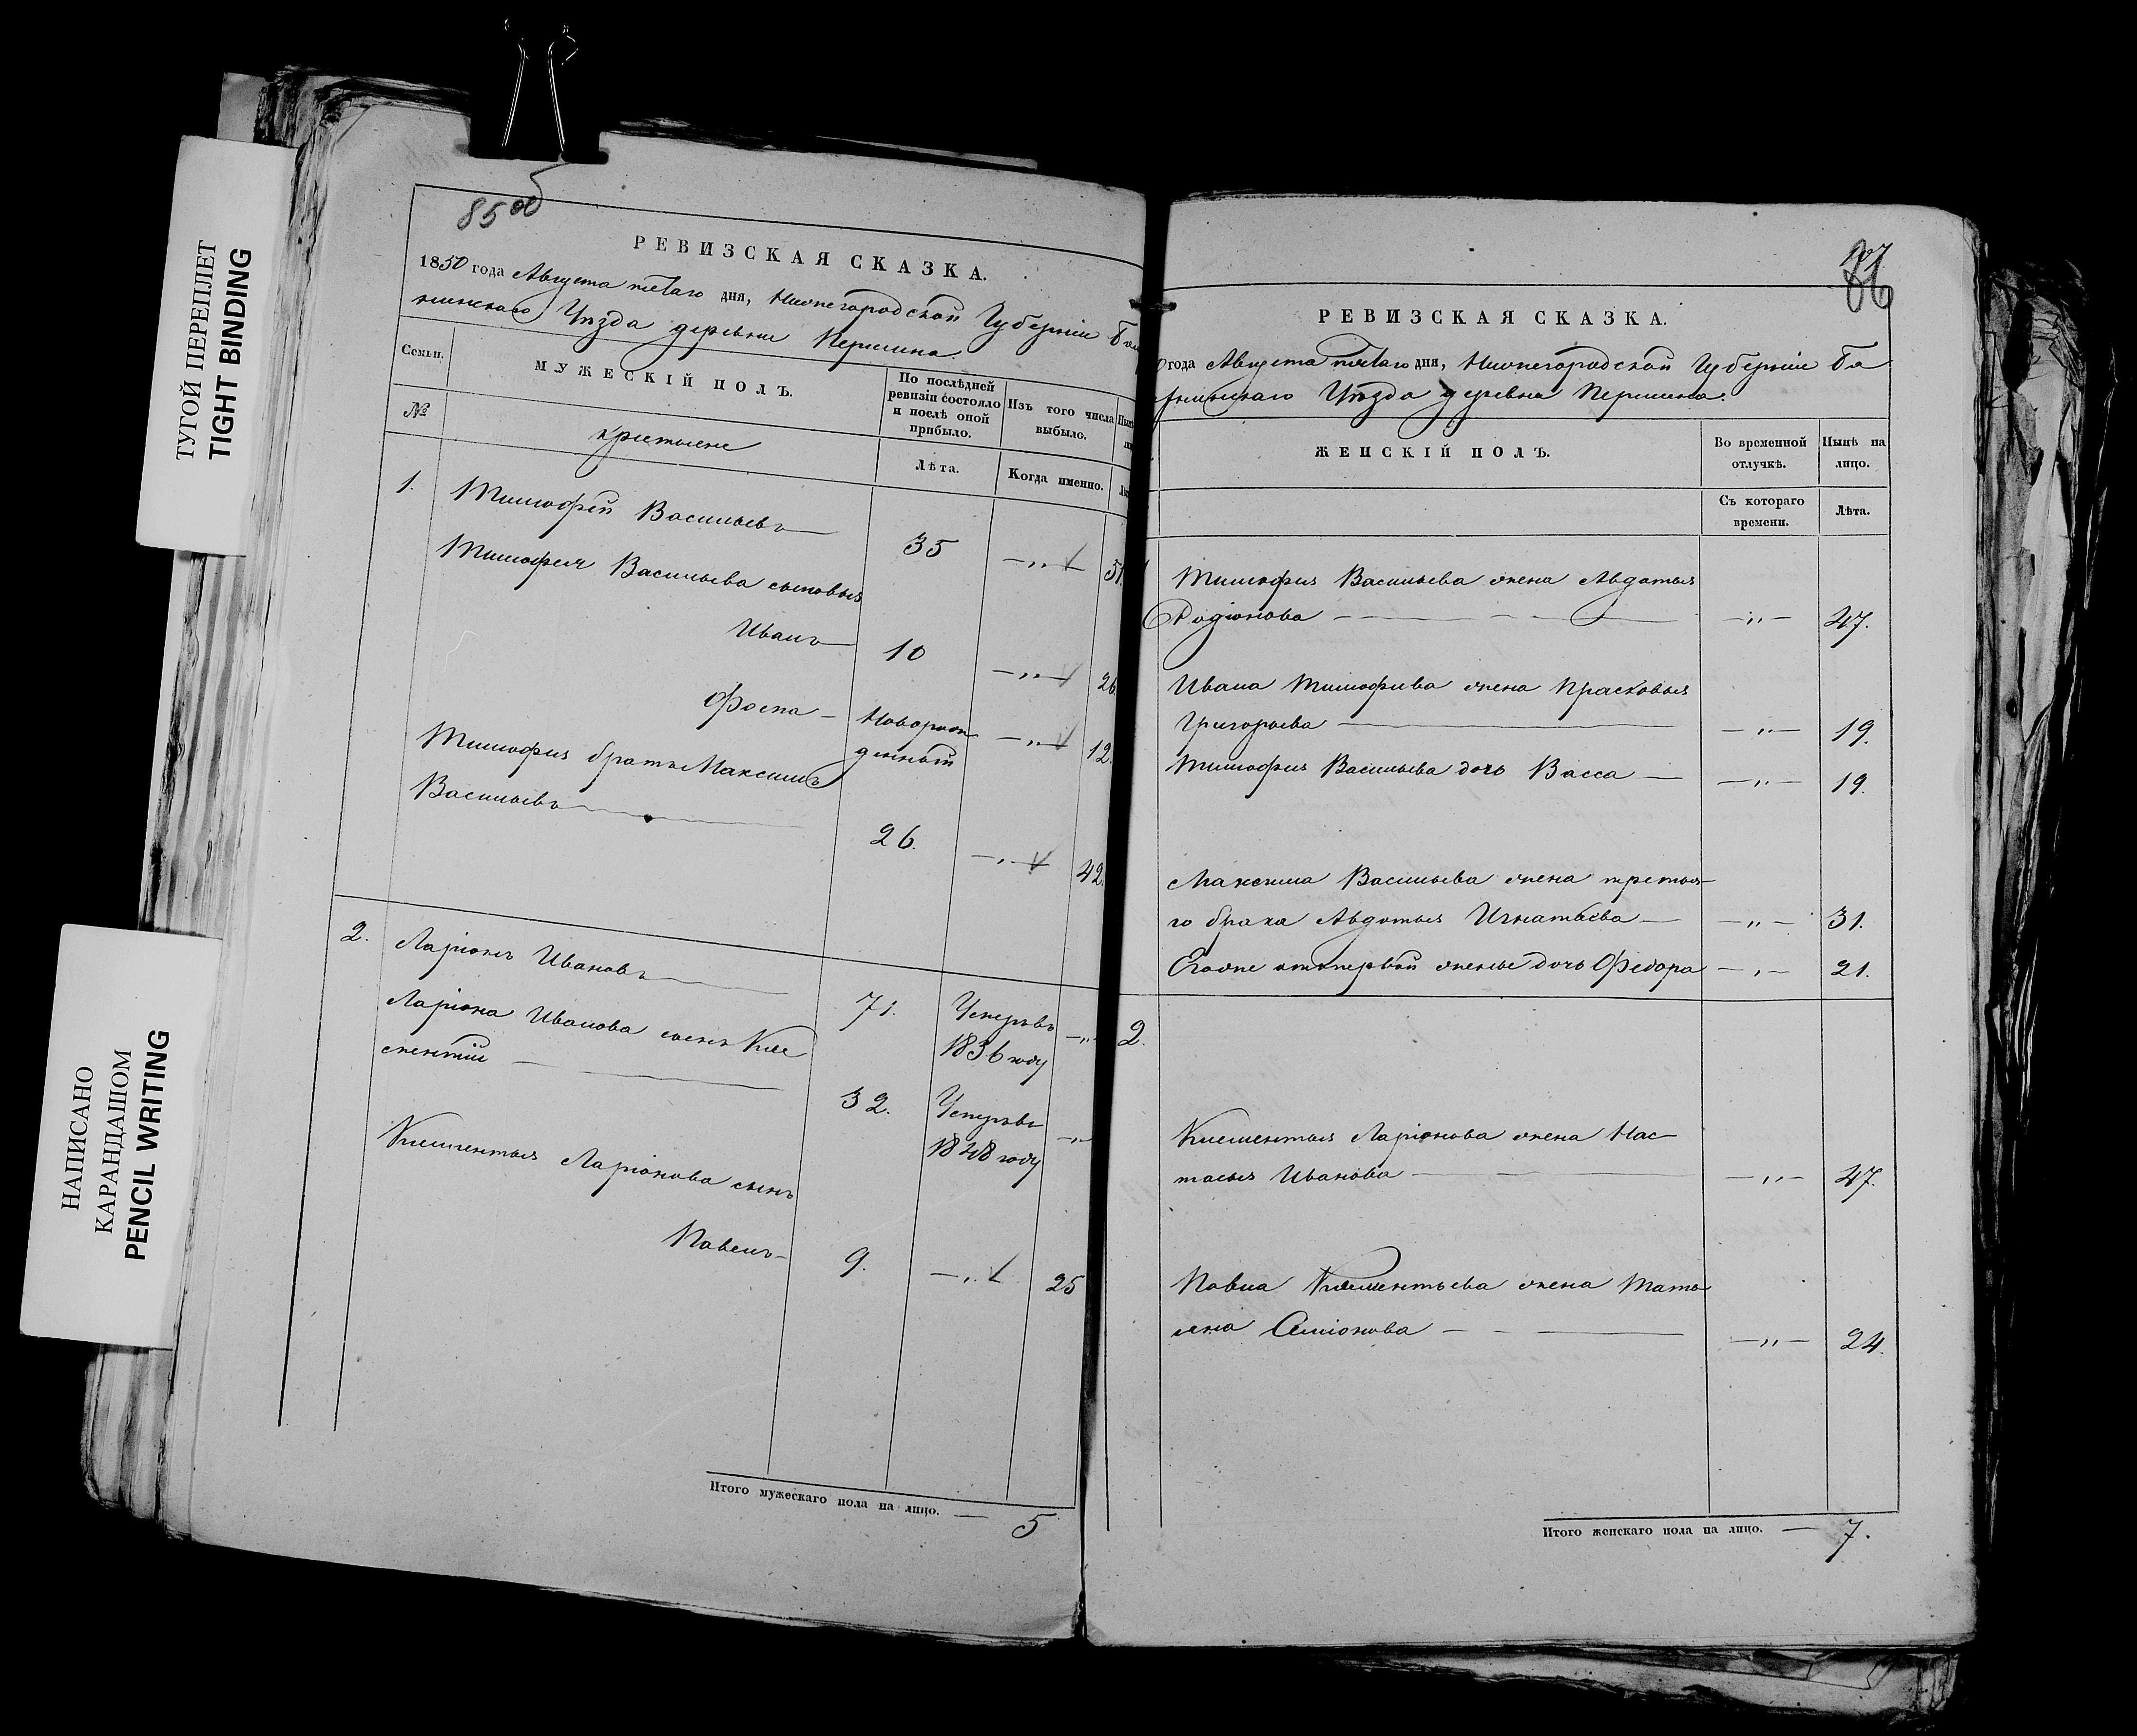 ТУГОЙ ПЕРЕПЛЕТ
TIGHT BINDING
НАПИСАНО
КАРАНДАШОМ
PENCIL WRITING
85 об
РЕВИЗСКАЯ СКАЗКА.
1850 года Августа пятаго дня, Нижегородской Губерніи Ба
нинскаго Уѣзда деревни Першина.
Семьи.
№
МУЖЕСКІЙ ПОЛЪ.
По послѣдней
ревизіи состояло
и послѣ оной
прибыло.
Изъ того числа
выбыло.
крестьяне
Лѣта.
Когда именно.
1.
Тимофей Васильевъ
35
—„—
51.
Тимофея Васильева сыновья
Иванъ
10
—„—
26
Фока
Новорож
денный
—„—
12.
Тимофея братъ Максимъ
Васильевъ
26.
—„—
42.
2.
Ларіонъ Ивановъ
71.
Умеръ въ
1836 году
—„—
Ларіона Иванова сынъ Кле
ментій
32.
Умеръ въ
1848 году
—„—
Клементья Ларіонова сынъ
Павелъ
9.
—„—
25
Итого мужескаго пола на лицо. — 5
86
РЕВИЗСКАЯ СКАЗКА.
года Августа пятаго дня, Нижегородской Губерніи Ба
Уѣзда деревни Першина.
ЖЕНСКІЙ ПОЛЪ.
Во временной
отлучкѣ.
Нынѣ на
лицо.
Съ котораго
времени.
Лѣта.
Тимофея Васильева жена Авдотья
Родіонова
—„—
47.
Ивана Тимофеева жена Прасковья
Григорьева
—„—
19.
Тимофея Васильева дочь Васса
—„—
19.
Максима Васильева жена третья
го брака Авдотья Игнатьева
—„—
31.
Егоже отъ первой жены дочь Федора
—„—
21.
2.
Клементья Ларіонова жена Нас
тасья Иванова
—„—
47.
Павла Клементьева жена Тать
яна Симіонова
—„—
24.
Итого женскаго пола на лицо. — 7.